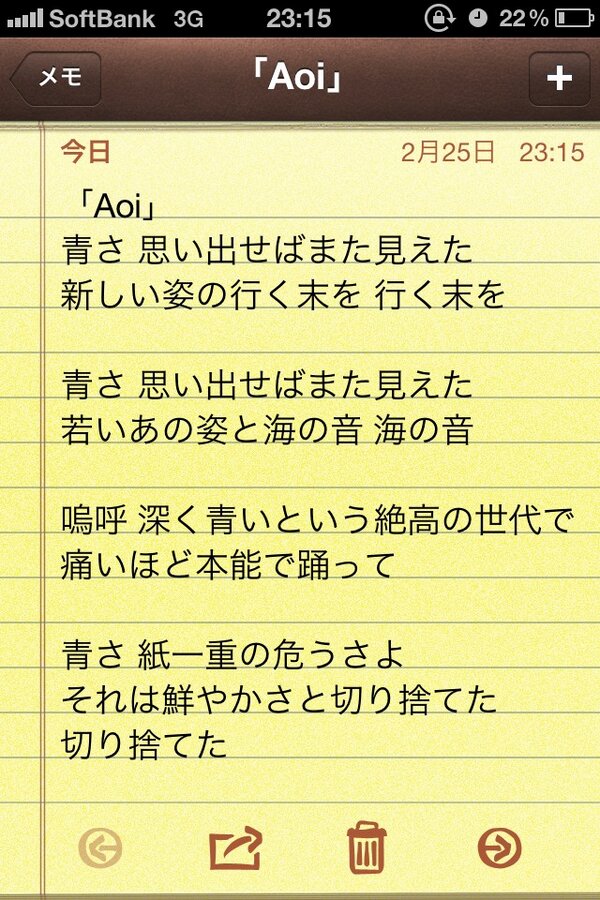 SoftBank 3G 23:15 22%
メモ 「Aoi」 +
今日 2月25日 23:15
「Aoi」
青さ 思い出せばまた見えた
新しい姿の行く末を 行く末を
青さ 思い出せばまた見えた
若いあの姿と海の音 海の音
嗚呼 深く青いという絶高の世代で
痛いほど本能で踊って
青さ 紙一重の危うさよ
それは鮮やかさと切り捨てた
切り捨てた